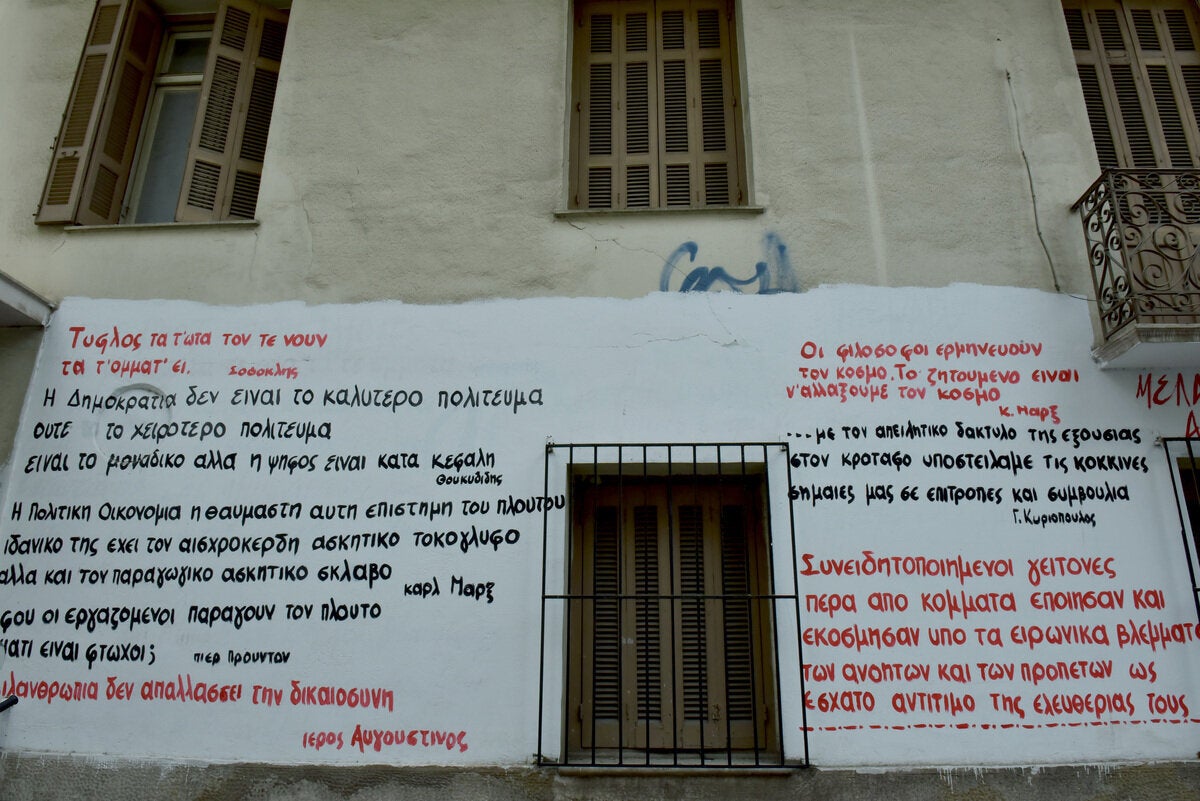 Τυφλος τα τ'ωτα τον τε νουν
τα τ'ομματ' ει.
Σοφοκλης
Η Δημοκρατια δεν ειναι το καλυτερο πολιτευμα
ουτε το χειροτερο πολιτευμα
ειναι το μοναδικο αλλα η ψηφος ειναι κατα κεφαλη
Θουκυδιδης
Η Πολιτικη Οικονομια η θαυμαστη αυτη επιστημη του πλουτου
ιδανικο της εχει τον αισχροκερδη ασκητικο τοκογλυφο
αλλα και τον παραγωγικο ασκητικο σκλαβο
καρλ Μαρξ
φου οι εργαζομενοι παραγουν τον πλουτο
ιατι ειναι φτωχοι;
πιερ Προυντον
ιλανθρωπια δεν απαλλασσει την δικαιοσυνη
ιερος Αυγουστινος
Οι φιλοσοφοι ερμηνευουν
τον κοσμο. Το ζητουμενο ειναι
ν'αλλαξουμε τον κοσμο
Κ. Μαρξ
...με τον απειλητικο δακτυλο της εξουσιας
στον κροταφο υποστειλαμε τις κοκκινες
σημαιες μας σε επιτροπες και συμβουλια
Γ. Κυριοπουλος
Συνειδητοποιημενοι γειτονες
περα απο κομματα εποιησαν και
εκοσμησαν υπο τα ειρωνικα βλεμματα
των ανοητων και των προπετων ως
εσχατο αντιτιμο της ελευθεριας τους
ΜΕΛΑ